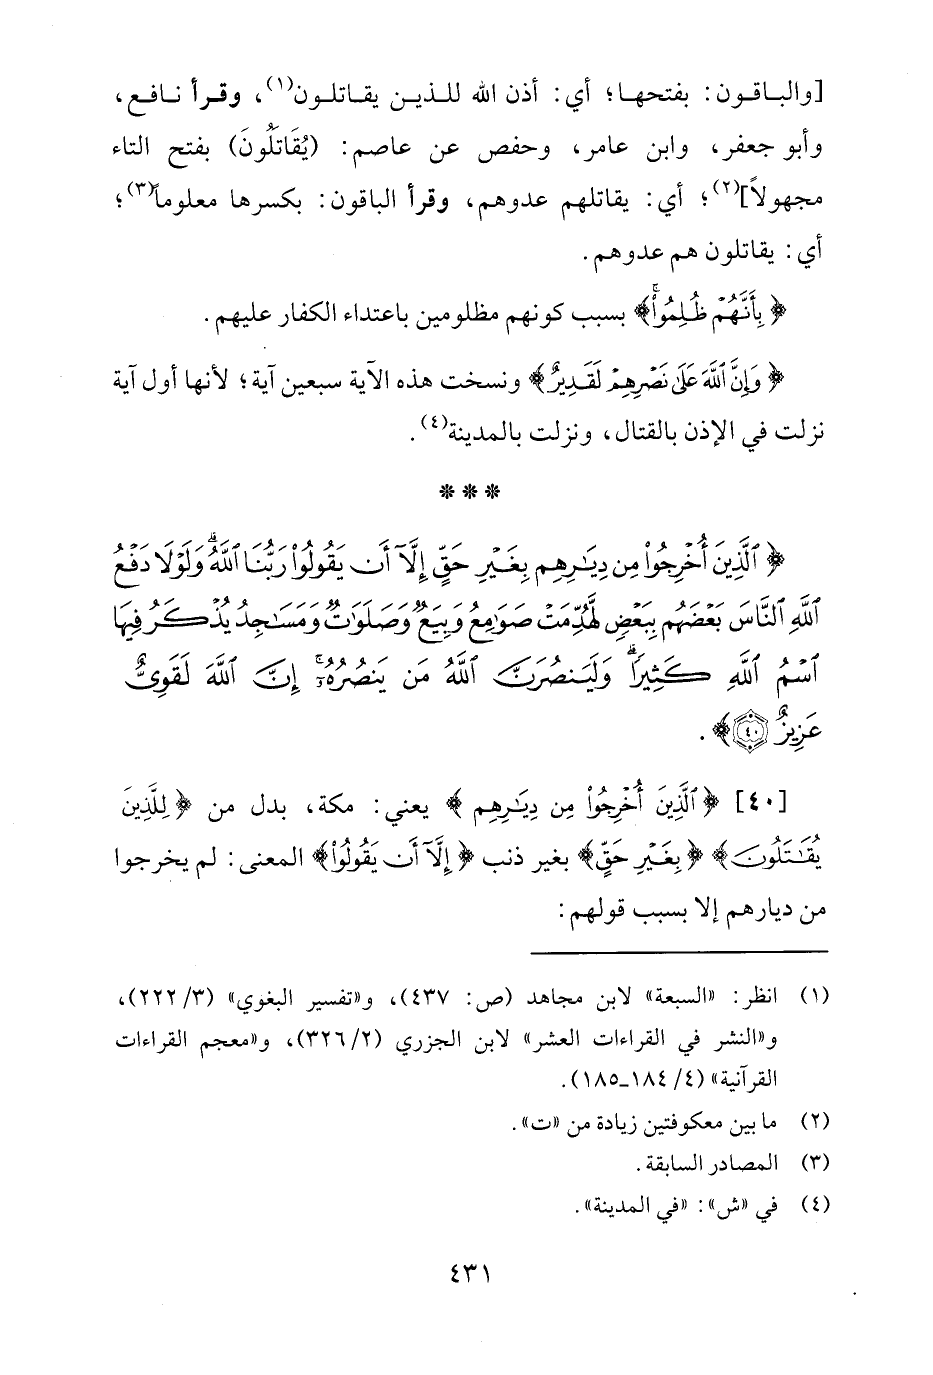 [والباقون: بفتحها؛ أي: أذن الله للذين يقاتلون(١)، وقرأ نافع،
وأبو جعفر، وابن عامر، وحفص عن عاصم: (يُقَاتَلُونَ) بفتح التاء
مجهولاً](٢)؛ أي: يقاتلهم عدوهم، وقرأ الباقون: بكسرها معلوماً(٣)؛
أي: يقاتلون هم عدوهم.
﴿بِأَنَّهُمْ ظُلِمُواْ﴾ بسبب كونهم مظلومين باعتداء الكفار عليهم.
﴿وَإِنَّ ٱللَّهَ عَلَىٰ نَصْرِهِمْ لَقَدِيرٌ﴾ ونسخت هذه الآية سبعين آية؛ لأنها أول آية
نزلت في الإذن بالقتال، ونزلت بالمدينة(٤).
***
﴿ٱلَّذِينَ أُخْرِجُواْ مِن دِيَٰرِهِم بِغَيْرِ حَقٍّ إِلَّآ أَن يَقُولُواْ رَبُّنَا ٱللَّهُ ۗ وَلَوْلَا دَفْعُ
ٱللَّهِ ٱلنَّاسَ بَعْضَهُم بِبَعْضٍ لَّهُدِّمَتْ صَوَٰمِعُ وَبِيَعٌ وَصَلَوَٰتٌ وَمَسَٰجِدُ يُذْكَرُ فِيهَا
ٱسْمُ ٱللَّهِ كَثِيرًا ۗ وَلَيَنصُرَنَّ ٱللَّهُ مَن يَنصُرُهُۥٓ ۚ إِنَّ ٱللَّهَ لَقَوِيٌّ
عَزِيزٌ ۝٤٠﴾.
[٤٠] ﴿ٱلَّذِينَ أُخْرِجُواْ مِن دِيَٰرِهِم﴾ يعني: مكة، بدل من ﴿لِلَّذِينَ
يُقَٰتَلُونَ﴾ ﴿بِغَيْرِ حَقٍّ﴾ بغير ذنب ﴿إِلَّآ أَن يَقُولُواْ﴾ المعنى: لم يخرجوا
من ديارهم إلا بسبب قولهم:
(١) انظر: «السبعة» لابن مجاهد (ص: ٤٣٧)، و«تفسير البغوي» (٣/ ٢٢٢)،
و«النشر في القراءات العشر» لابن الجزري (٢/ ٣٢٦)، و«معجم القراءات
القرآنية» (٤/ ١٨٤ـ١٨٥).
(٢) ما بين معكوفتين زيادة من «ت».
(٣) المصادر السابقة.
(٤) في «ش»: «في المدينة».
٤٣١